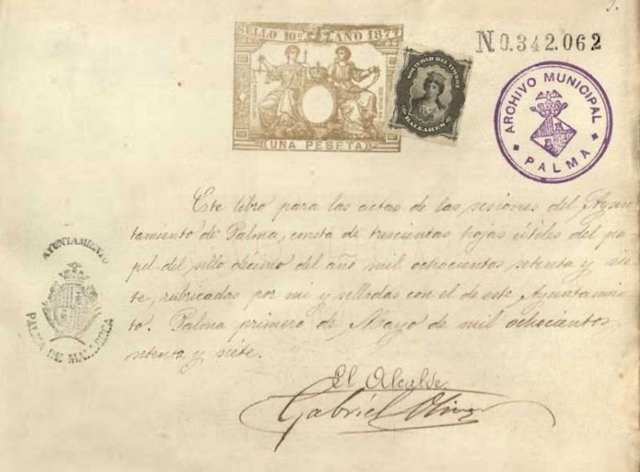 2.
SELLO 10º AÑO 1877
UNA PESETA
SOCIEDAD DEL TIMBRE
BALEARES
N0.342.062
ARCHIVO MUNICIPAL
PALMA
Este libro para las actas de las sesiones del Ayun-
tamiento de Palma, consta de trescientas hojas útiles del pa-
pel del sello décimo del año mil ochocientos setenta y sie-
te, rubricadas por mi y selladas con el de este Ayuntamien-
to. Palma primero de Mayo de mil ochocientos
setenta y siete.
AYUNTAMIENTO
PALMA DE MALLORCA
El Alcalde
Gabriel Oliver